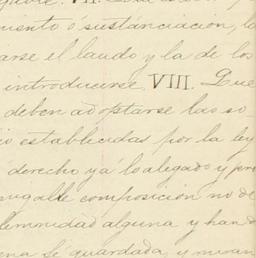 miento ó sustanciación, la
arse el laudo y la de los
introducirse. VIII. Que
deben adoptarse las so
establecidas por la ley
derecho y á lo alegado y pro
composición no de
lemnidad alguna y han d
guardada y